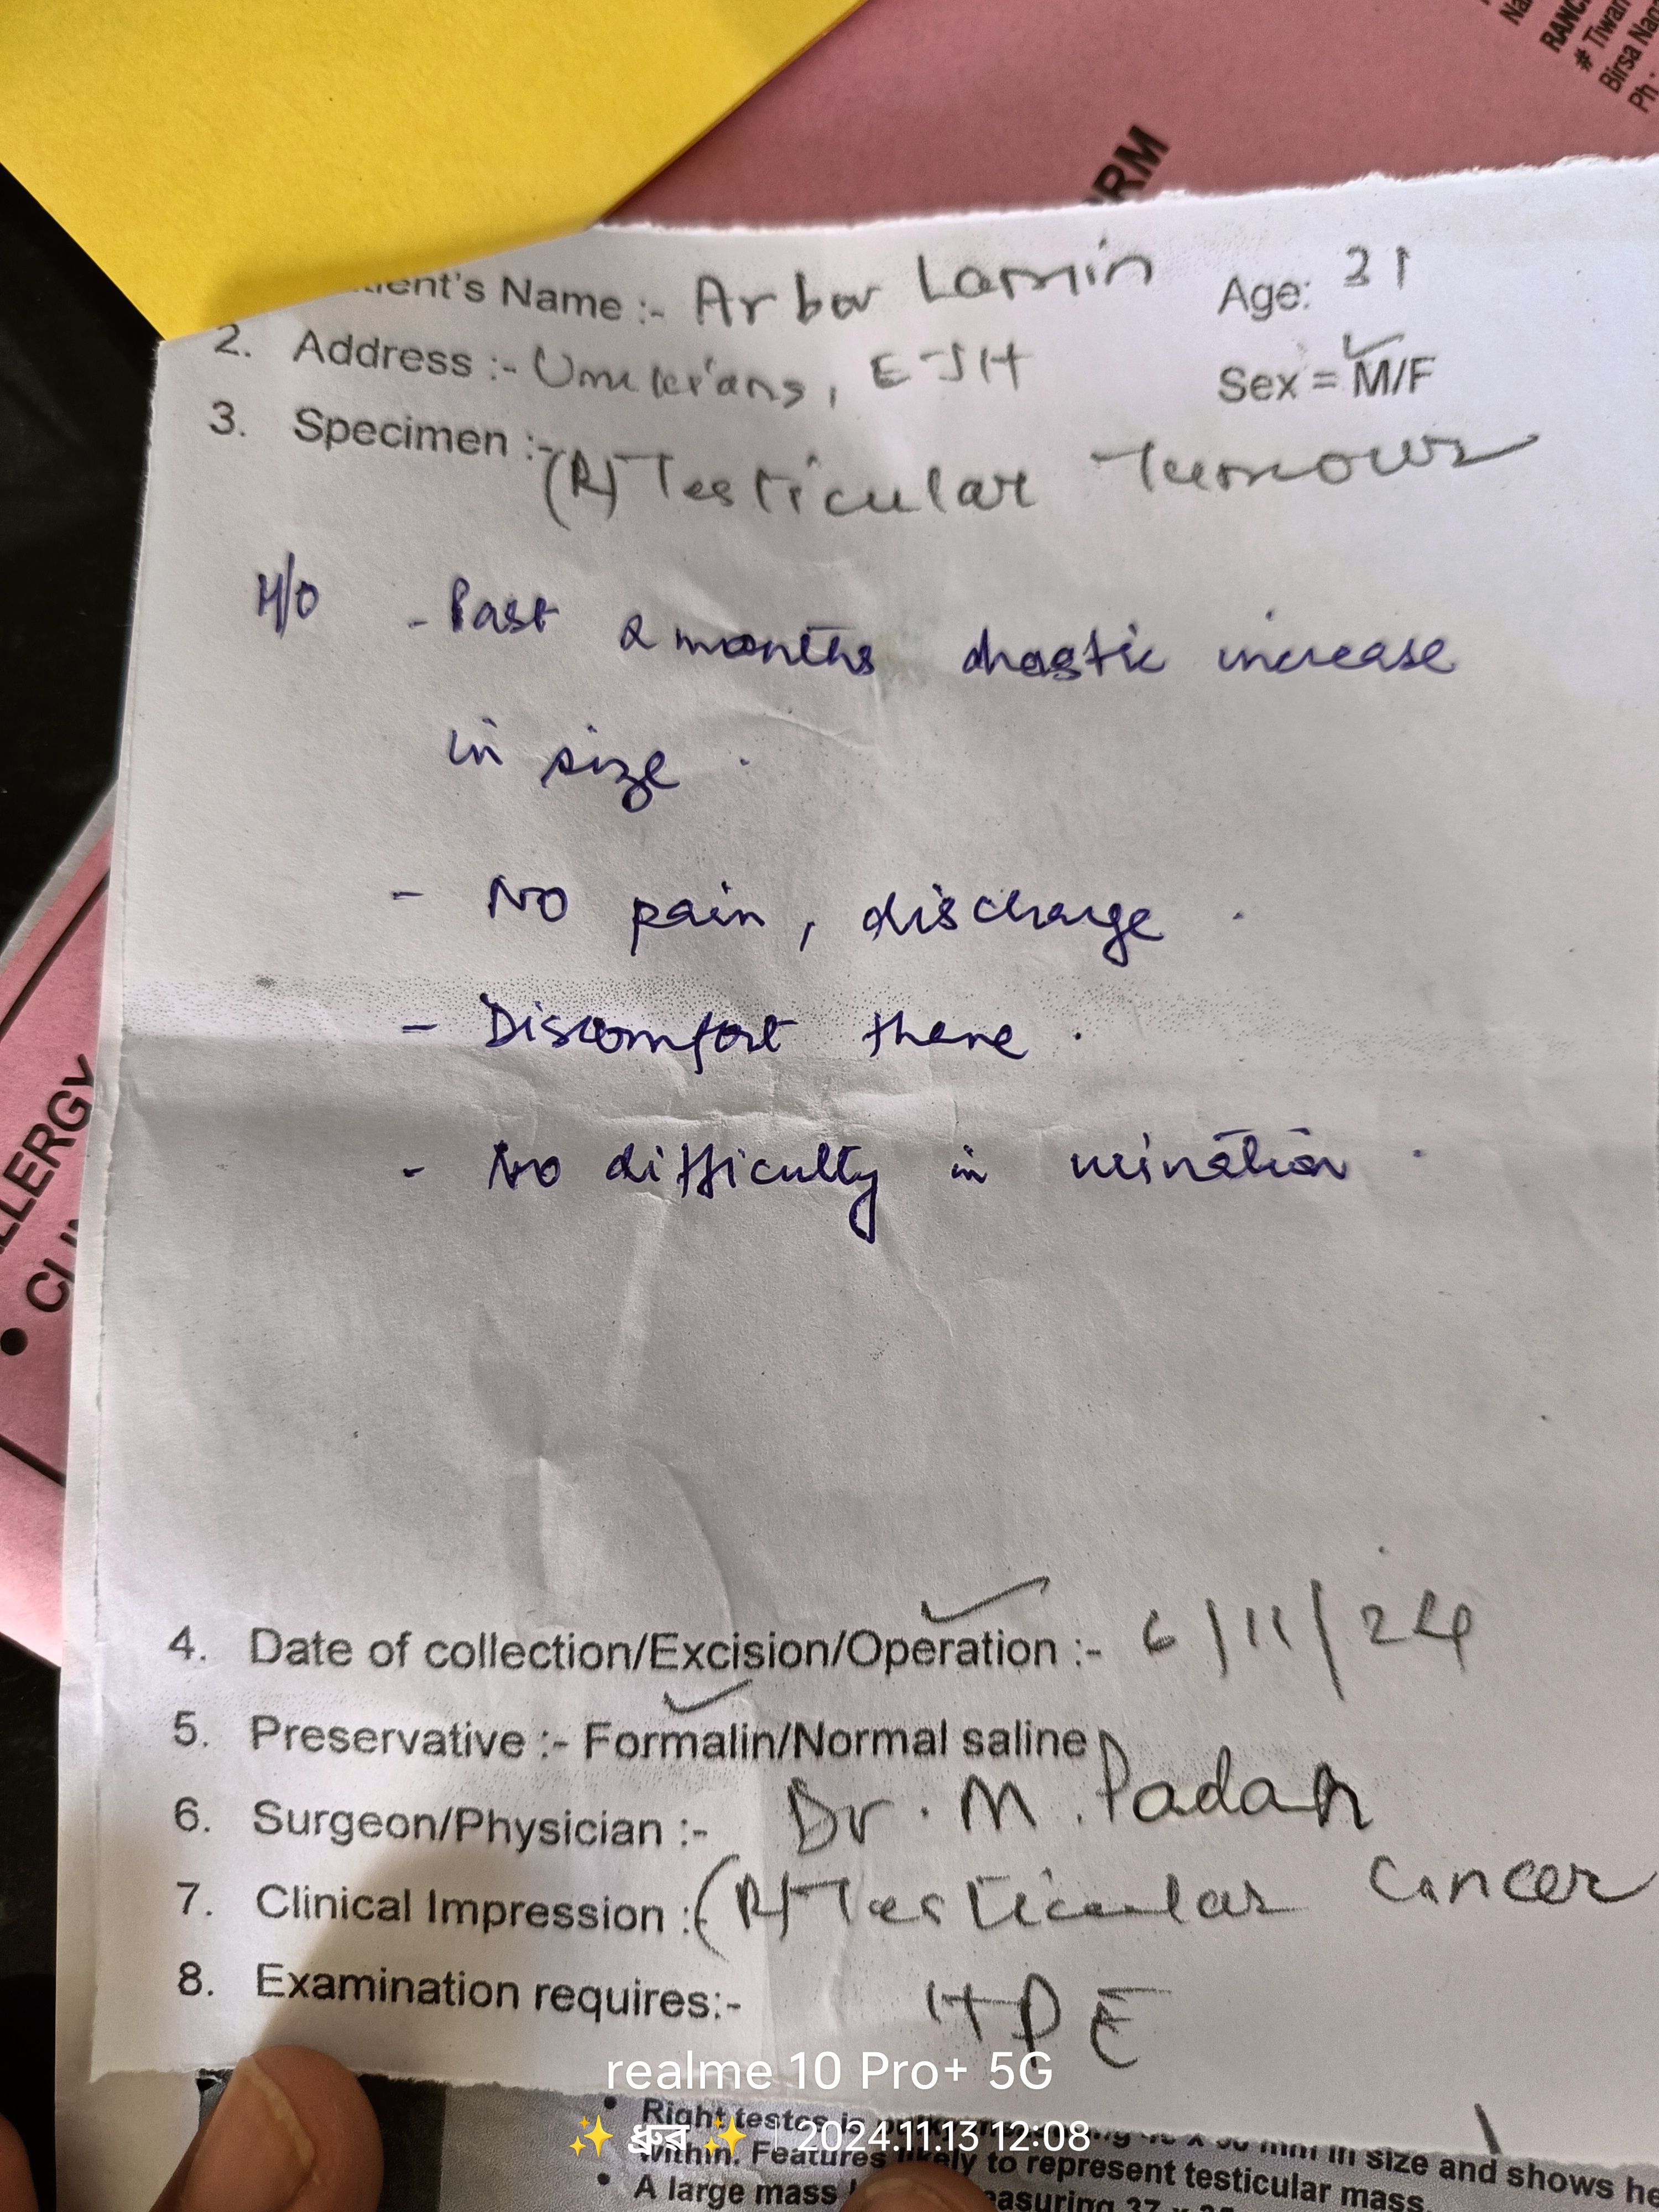 Na
RANC
# Tiwari
Birsa Naga
Ph :
ORM
ient's Name :- Arbor Lamin Age: 31
2. Address :- Umkiang, EJH Sex = M/F
3. Specimen :- (R) Testicular Tumour
H/O - Past 2 months drastic increase
in size .
- No pain, discharge .
- Discomfort there .
- No difficulty in urination .
LLERGY
• CLIN
4. Date of collection/Excision/Operation :- 6/11/24
5. Preservative :- Formalin/Normal saline
6. Surgeon/Physician :- Dr. M. Padah
7. Clinical Impression :- (R) Testicular Cancer
8. Examination requires:- HPE
realme 10 Pro+ 5G
✨ ধ্রুব ✨ | 2024.11.13 12:08
• Right testes is mm in size and shows he
within. Features likely to represent testicular mass
• A large mass measuring 37 x